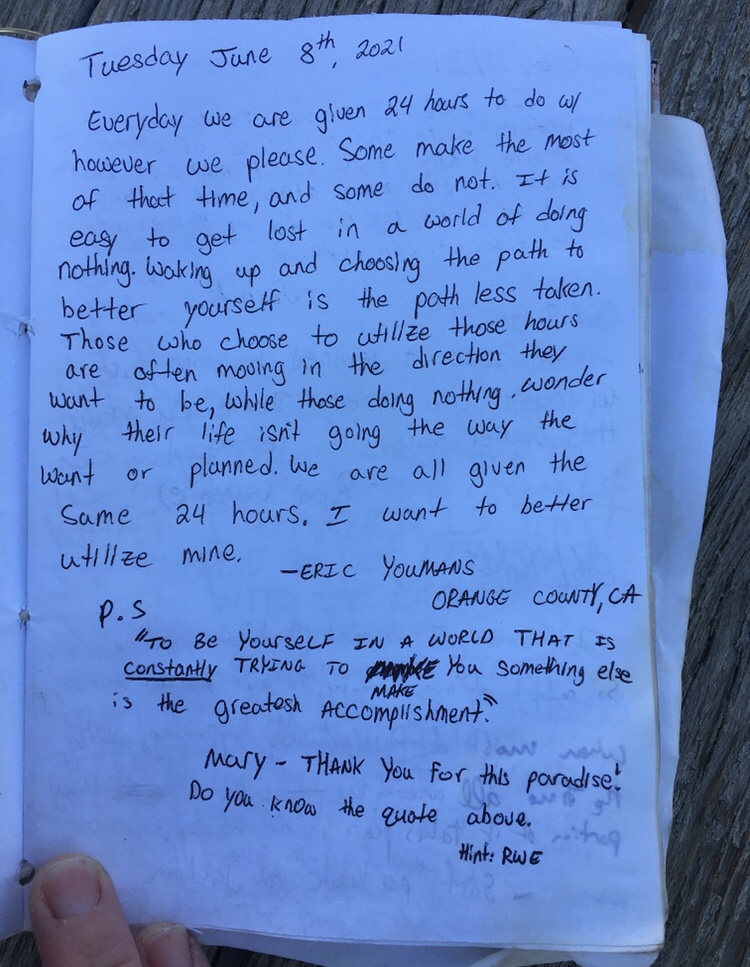 Tuesday June 8th, 2021
Everyday we are given 24 hours to do w/
however we please. Some make the most
of that time, and some do not. It is
easy to get lost in a world of doing
nothing. Waking up and choosing the path to
better yourself is the path less taken.
Those who choose to utilize those hours
are often moving in the direction they
want to be, while those doing nothing. wonder
why their life isn't going the way the
want or planned. We are all given the
Same 24 hours. I want to better
utilize mine.
-ERIC YOUMANS
ORANGE COUNTY, CA
P.S
"TO BE YOURSELF IN A WORLD THAT IS
constantly TRYING TO MAKE You Something else
is the greatesh ACCOmplishment."
Mary - THANK You For this paradise!
Do you know the quote above.
Hint: RWE